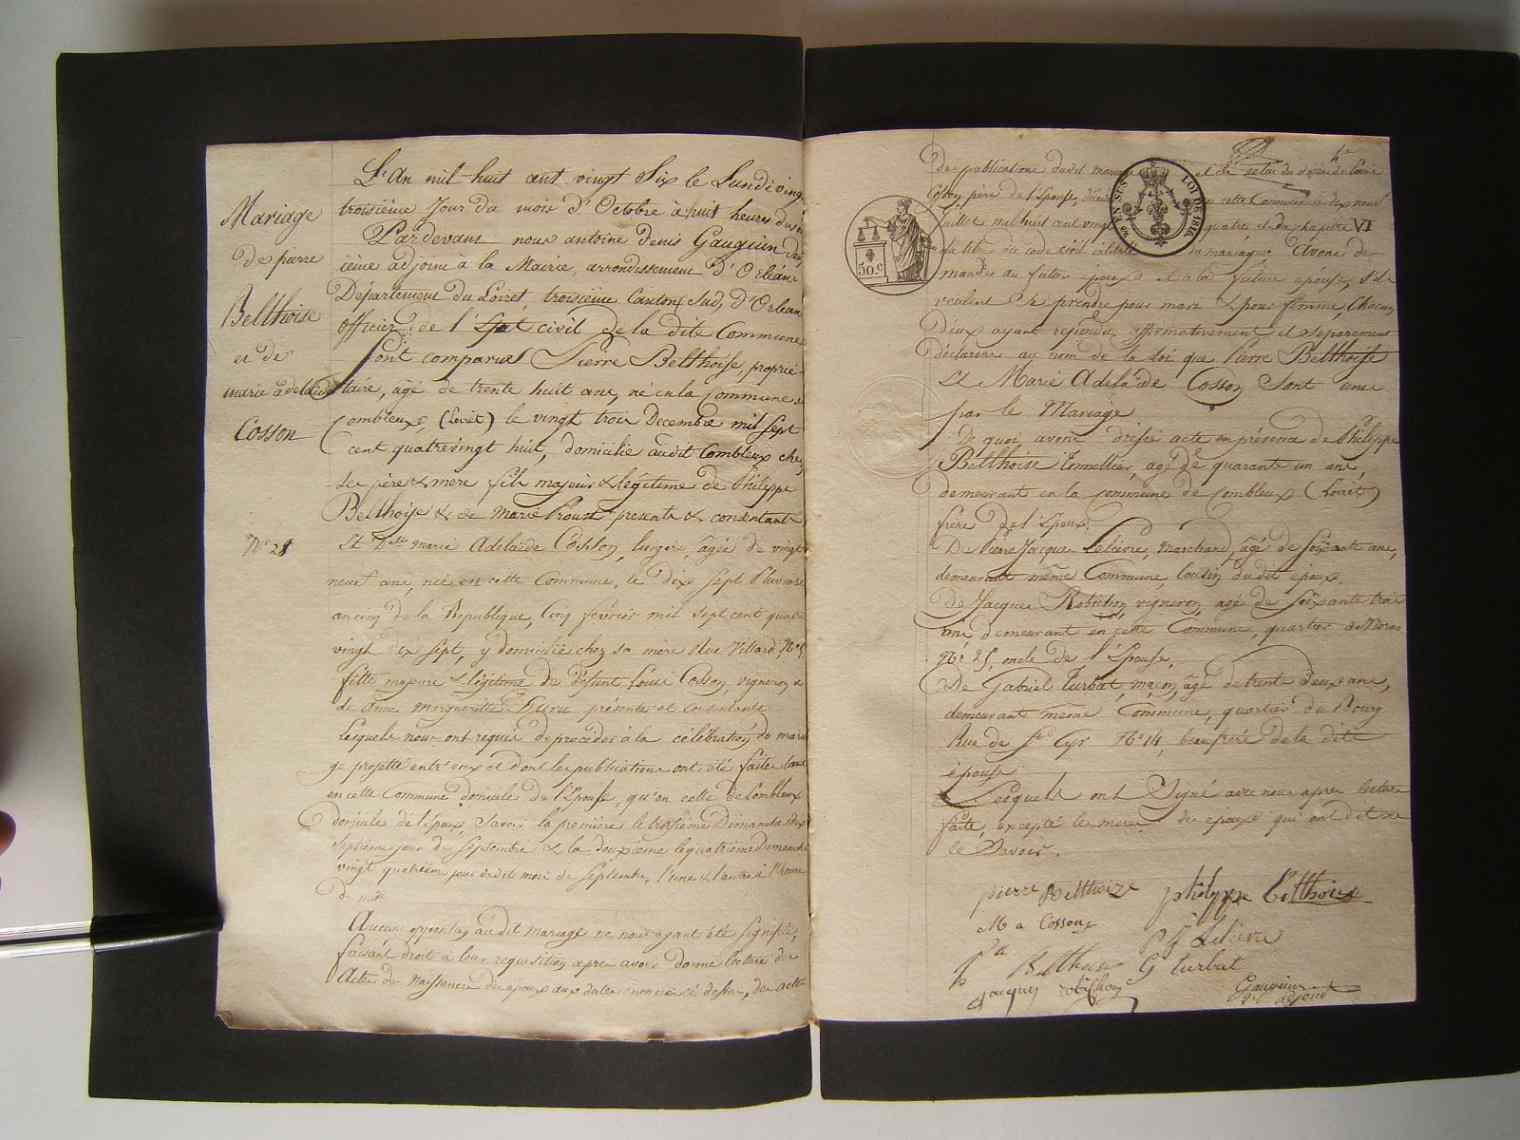 Mariage
de pierre
Belthoise
et de
marie adelaide
Cosson
N° 28
L'An mil huit cent vingt Six le Lundi vingt
troisième Jour du mois d'Octobre à huit heures du
Pardevant nous antoine denis Gauguin
ième adjoint à la Mairie, arrondissement d'Orléans
Département du Loiret, troisième Canton Sud, d'Orléans
officier de l'Etat civil de la dite Commune
Sont comparus Pierre Belthoise, proprié-
taire, agé de trente huit ans, né en la Commune de
Combleux, (Loiret) le vingt trois Decembre mil sept
cent quatrevingt huit, domicilié audit Combleux chez
Ses père & mère fils majeur & légitime de Philippe
Belthoise & de Marie Proust présents & consentants
Et Dlle marie Adelaïde Cosson, lingere, âgée de vingt
neuf ans, née en cette Commune, le dix sept Pluviose
an cinq de la République, Cinq fevrier mil sept cent quatre
vingt dix sept, y domiciliée chez sa mère Rue Villard N° 5
fille majeure & légitime de défunt Louis Cosson, vigneron &
de anne margueritte présente et consentante
Lesquels nous ont requis de proceder à la célébration du maria
ge projetté entr'eux et dont les publications ont été faites tant
en cette Commune domicile de l'Epouse, qu'en celle de Combleux
domicile de l'époux, Savoir la première le troisième Dimanche dix
Septième jour de Septembre & la deuxième le quatrième Dimanche
vingt quatrième jour dudit mois de Septembre, l'une & l'autre à l'heure
de midi
Aucune opposition au dit mariage ne nous ayant été signifiée,
faisant droit à leur requisition après avoir donné lecture des
Actes de Naissance des époux aux dates énoncées ci dessus, des actes
de publications dudit mariage et de celui de décès de Louis
Cosson, père de l'Epouse, en cette Commune le dix neuf
Juillet mil huit cent vingt quatre et du chapitre VI
du titre du code civil intitulé du mariage, Avons de-
mandé au futur époux et à la future épouse, s'ils
veulent se prendre pour mari & pour femme, Chacun
d'eux ayant répondu affirmativement et séparément
déclarons au nom de la loi que Pierre Belthoise
Et Marie Adelaïde Cosson Sont unis
par le Mariage
De quoi avons dressé acte en présence de Philippe
Belthoise tonnellier, agé de quarante un ans,
demeurant en la commune de Combleux (Loiret)
frère de l'Epoux.
De Pierre Jacques Lelièvre, marchand, âgé de soixante ans,
demeurant même Commune Cousin du dit époux.
de Jacques Robichon, vigneron, agé de Soixante trois
ans, demeurant en cette Commune, quartier
N° 25, oncle de l'Epouse,
De Gabriel Turbat, maçon, âgé de trente deux ans,
demeurant même Commune, quartier du Bourg
Rue de St Cyr N° 14, beaufrère de la dite
épouse
Lesquels ont Signé avec nous après lecture
faite, excepté les mères des époux qui ont dit ne
le Savoir.
pierre Belthoize
philippe Belthoise
M a Cosson
P J Lelievre
Belthoise
G turbat
jacques robichon
Gauguin
adjoint
50 c
LOI DE 1816